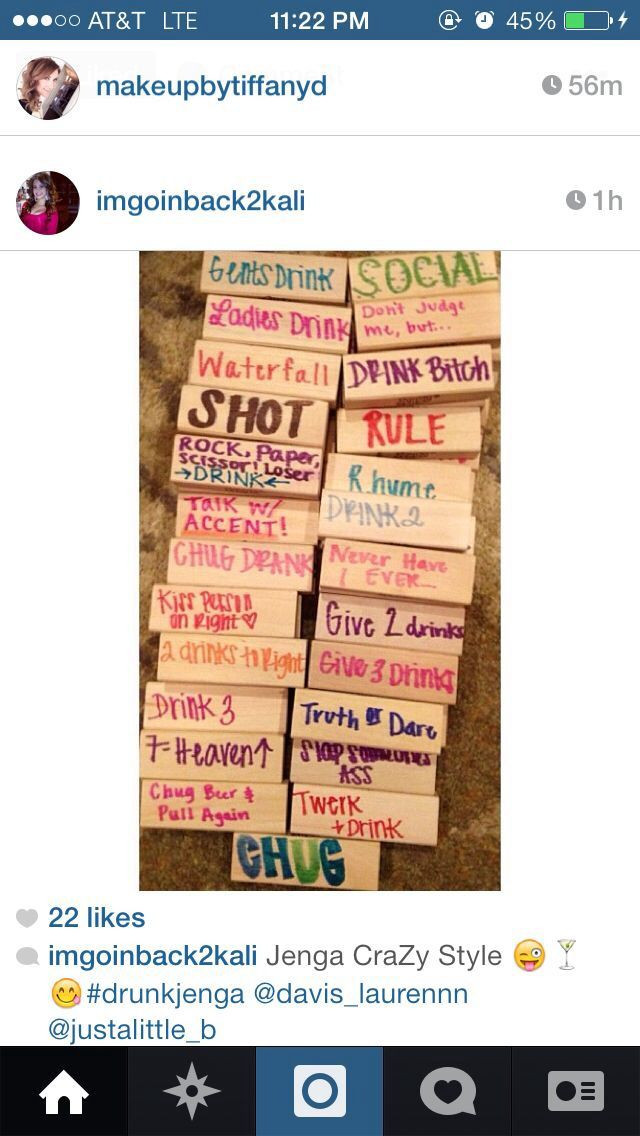 AT&T LTE 11:22 PM 45%
makeupbytiffanyd 56m
imgoinback2kali 1h
Gents Drink
SOCIAL
Ladies Drink
Don't Judge
me, but...
Waterfall
DRINK Bitch
SHOT
RULE
ROCK, Paper,
Scissor! Loser
→DRINK←
Rhyme
Talk w/
ACCENT!
DRINK 2
CHUG DRANK
Never Have
I EVER...
Kiss Person
on Right♡
Give 2 drinks
2 drinks to Right
Give 3 Drinks
Drink 3
Truth or Dare
7=Heaven↑
Slap Someones
ASS
Chug Beer &
Pull Again
Twerk
+Drink
CHUG
22 likes
imgoinback2kali Jenga CraZy Style 😜🍸
😋#drunkjenga @davis_laurennn
@justalittle_b